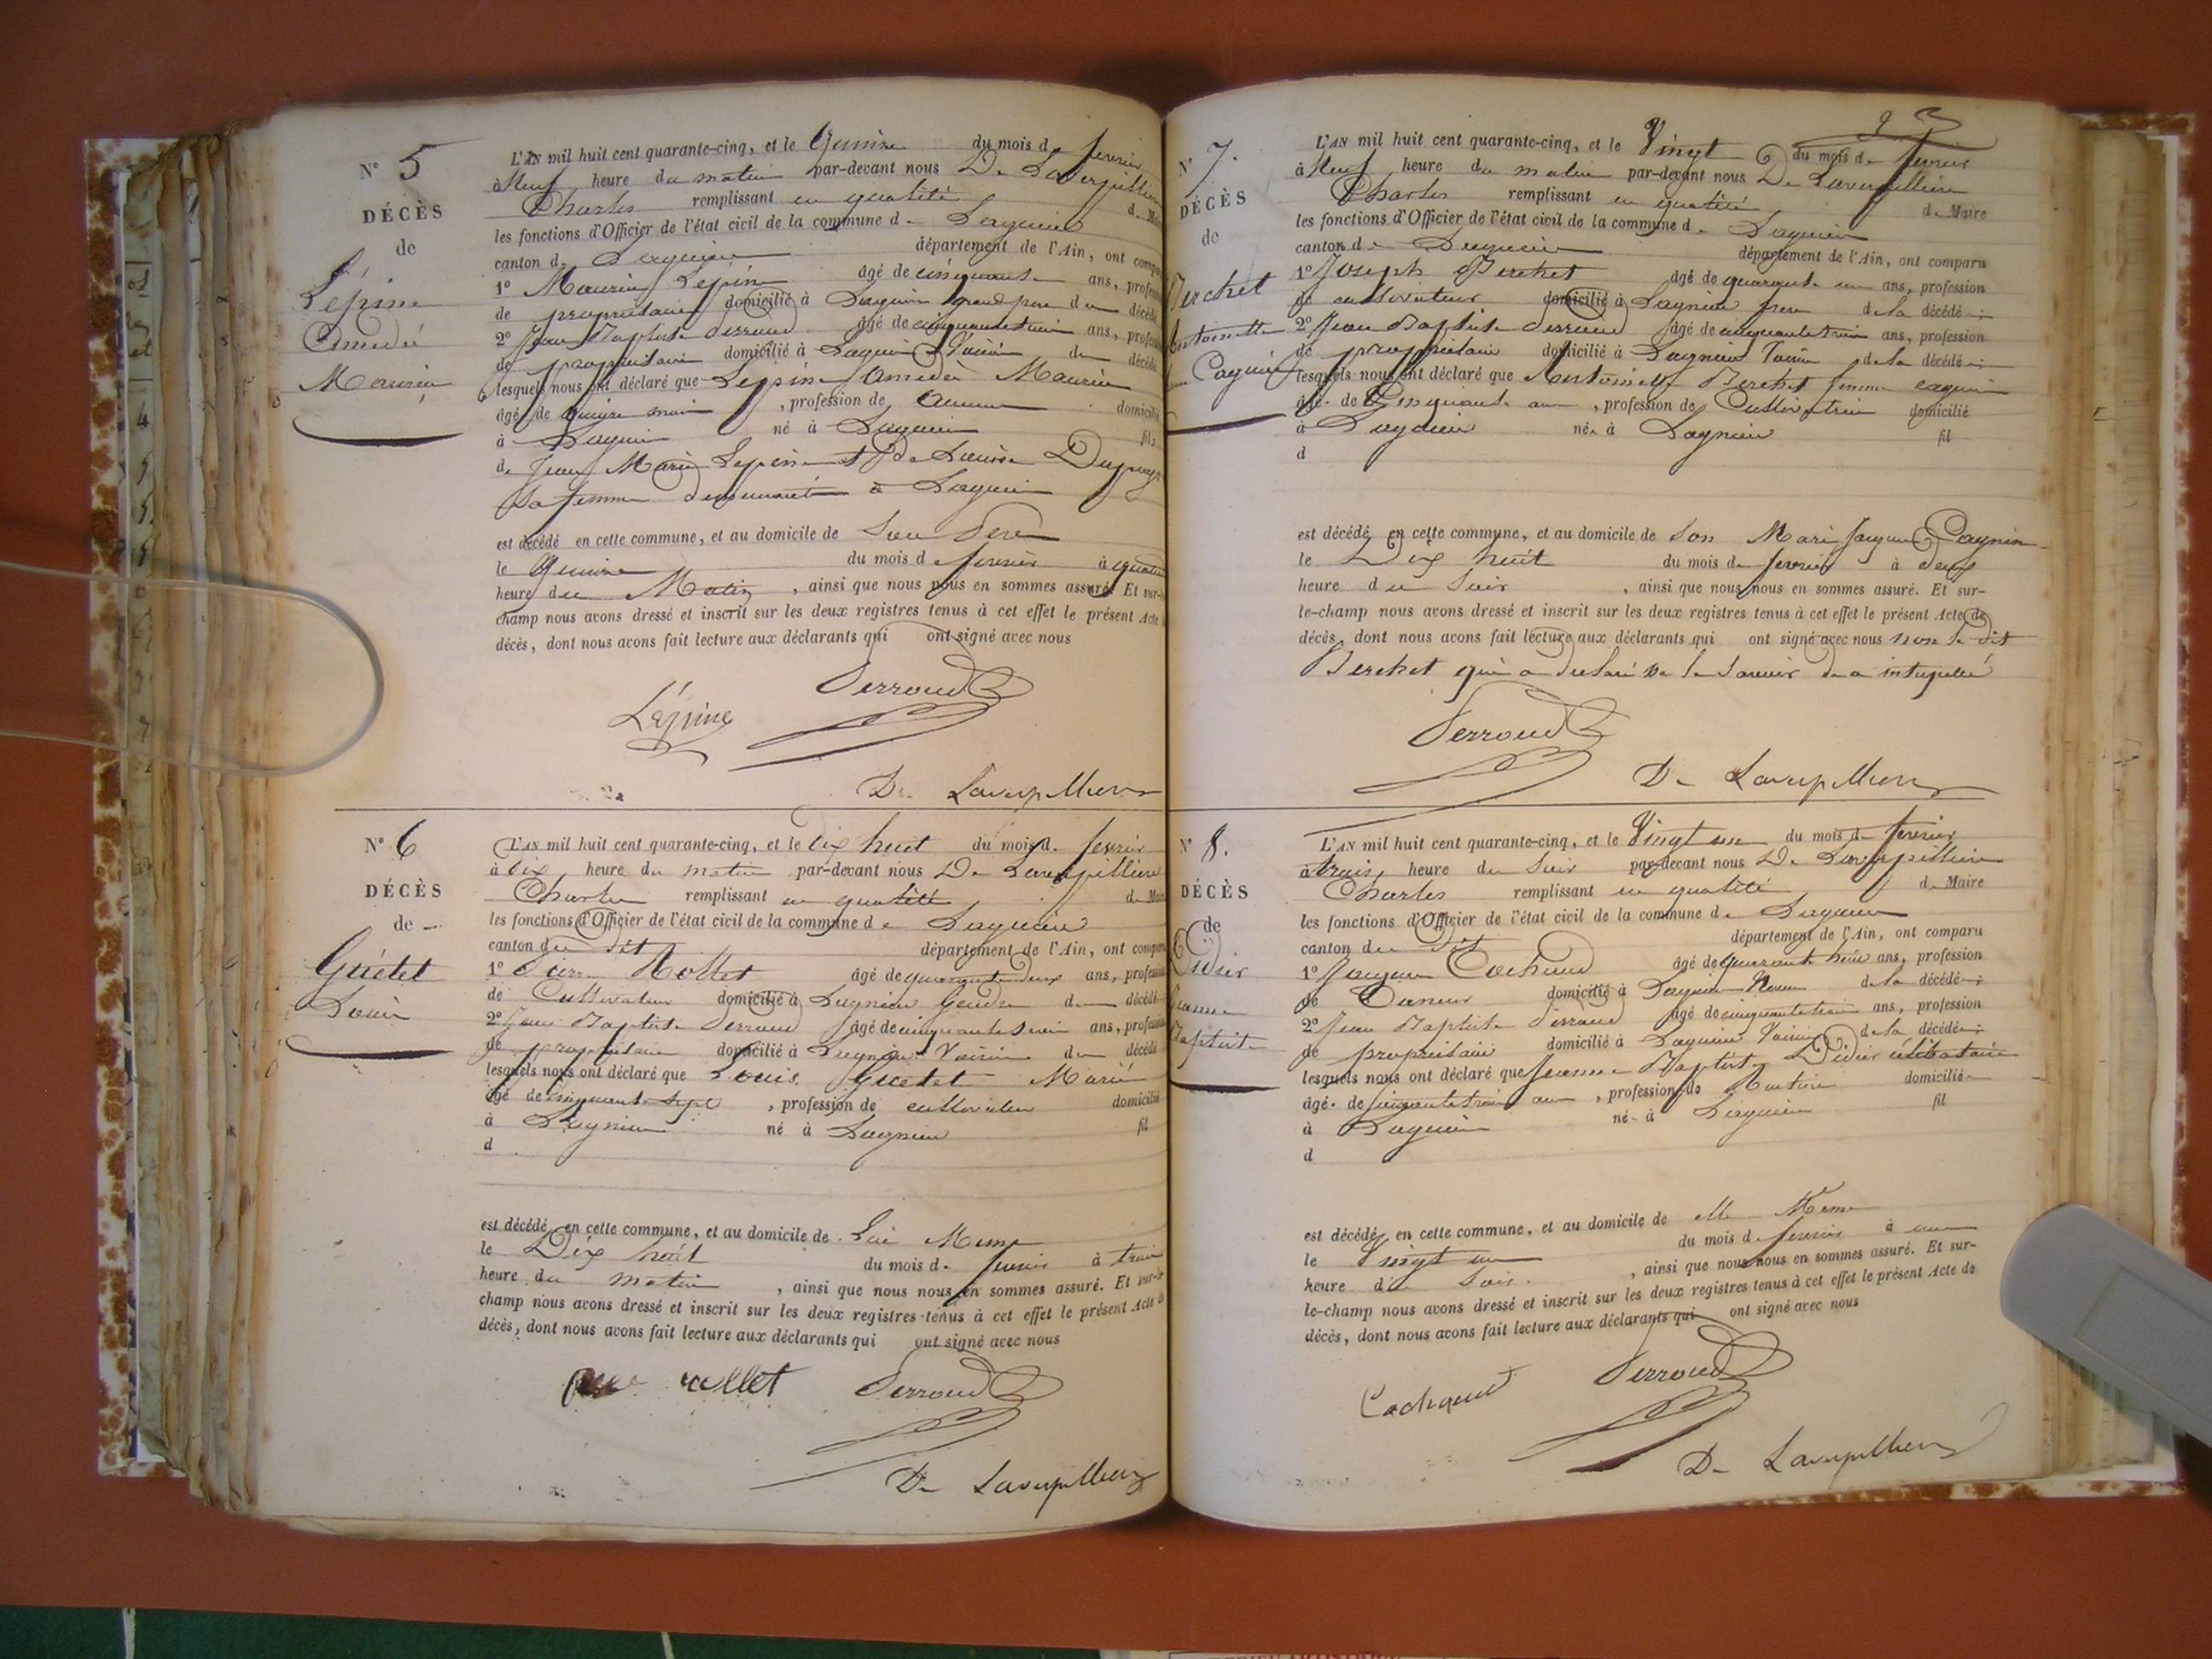 N° 5
DÉCÈS
de
Lépine
Amedé
Maurice
L'AN mil huit cent quarante-cinq, et le Quinze du mois de fevrier
à Neuf heure du matin par-devant nous De Laverpilliere
Charles remplissant en qualité de Maire
les fonctions d'Officier de l'état civil de la commune de Lagnieu
canton de Lagnieu département de l'Ain, ont comparu
1° Maurice Lépine âgé de cinquante ans, profession
de propriétaire domicilié à Lagnieu grand pere du décédé
2° Jean Baptiste Perroud âgé de cinquante trois ans, profession
de propriétaire domicilié à Lagnieu Voisin du décédé
lesquels nous ont déclaré que Lepine Amedée Maurice
âgé de quinze mois, profession de Aucune domicilié
à Lagnieu né à Lagnieu fils
de Jean Marie Lepine et de Louise Dupuy
sa femme demeurant à Lagnieu
est décédé en cette commune, et au domicile de Son Pere
le Quinze du mois de fevrier à quatre
heure du Matin, ainsi que nous nous en sommes assuré. Et sur-le
champ nous avons dressé et inscrit sur les deux registres tenus à cet effet le présent Acte de
décès, dont nous avons fait lecture aux déclarants qui ont signé avec nous
Lépine Perroud
De Laverpilliere
N° 6
DÉCÈS
de
Guétet
Louis
L'AN mil huit cent quarante-cinq, et le dix huit du mois de fevrier
à dix heure du matin par-devant nous De Laverpilliere
Charles remplissant en qualité de Maire
les fonctions d'Officier de l'état civil de la commune de Lagnieu
canton du dit département de l'Ain, ont comparu
1° Pierre Rollet âgé de quarante deux ans, profession
de Cultivateur domicilié à Lagnieu Gendre du décédé
2° Jean Baptiste Perroud âgé de cinquante trois ans, profession
de propriétaire domicilié à Lagnieu Voisin du décédé
lesquels nous ont déclaré que Louis Guetet Marié
âgé de cinquante sept, profession de cultivateur domicilié
à Lagnieu né à Lagnieu fil
d
est décédé en cette commune, et au domicile de Lui Meme
le Dix huit du mois de fevrier à trois
heure du matin, ainsi que nous nous en sommes assuré. Et sur-le
champ nous avons dressé et inscrit sur les deux registres tenus à cet effet le présent Acte de
décès, dont nous avons fait lecture aux déclarants qui ont signé avec nous
rollet Perroud
De Laverpilliere
N° 7.
DÉCÈS
de
Berchet
Antoinette
Cagnin
L'AN mil huit cent quarante-cinq, et le Vingt du mois de fevrier
à Neuf heure du matin par-devant nous De Laverpilliere
Charles remplissant en qualité de Maire
les fonctions d'Officier de l'état civil de la commune de Lagnieu
canton de Lagnieu département de l'Ain, ont comparu
1° Joseph Berchet âgé de quarante un ans, profession
de cultivateur domicilié à Lagnieu frere de la décédée
2° Jean Baptiste Perroud âgé de cinquante trois ans, profession
de propriétaire domicilié à Lagnieu Voisin de la décédée
lesquels nous ont déclaré que Antoinette Berchet femme cagnin
âgée de Cinquante ans, profession de Cultivatrice domicilié
à Lagnieu née à Lagnieu fil
d
est décédé en cette commune, et au domicile de Son Mari Jacques Cagnin
le Dix huit du mois de fevrier à deux
heure du Soir, ainsi que nous nous en sommes assuré. Et sur-
le-champ nous avons dressé et inscrit sur les deux registres tenus à cet effet le présent Acte de
décès, dont nous avons fait lecture aux déclarants qui ont signé avec nous non le dit
Berchet qui a declaré ne le Savoir de a intepellé
Perroud
De Laverpilliere
N° 8.
DÉCÈS
de
Didier
Jeanne
Baptiste
L'AN mil huit cent quarante-cinq, et le Vingt un du mois de fevrier
à trois heure du Soir par-devant nous De Laverpilliere
Charles remplissant en qualité de Maire
les fonctions d'Officier de l'état civil de la commune de Lagnieu
canton du dit département de l'Ain, ont comparu
1° Jacques Cochaud âgé de quarante huit ans, profession
de domicilié à Lagnieu de la décédée
2° Jean Baptiste Perroud âgé de cinquante trois ans, profession
de propriétaire domicilié à Lagnieu Voisin de la décédée
lesquels nous ont déclaré que Jeanne Baptiste Didier célibataire
âgée de cinquante trois ans, profession de domiciliée
à Lagnieu née à Lagnieu fil
d
est décédée en cette commune, et au domicile de elle Meme
le Vingt un du mois de fevrier à une
heure du Soir, ainsi que nous nous en sommes assuré. Et sur-
le-champ nous avons dressé et inscrit sur les deux registres tenus à cet effet le présent Acte de
décès, dont nous avons fait lecture aux déclarants qui ont signé avec nous
Perroud
De Laverpilliere